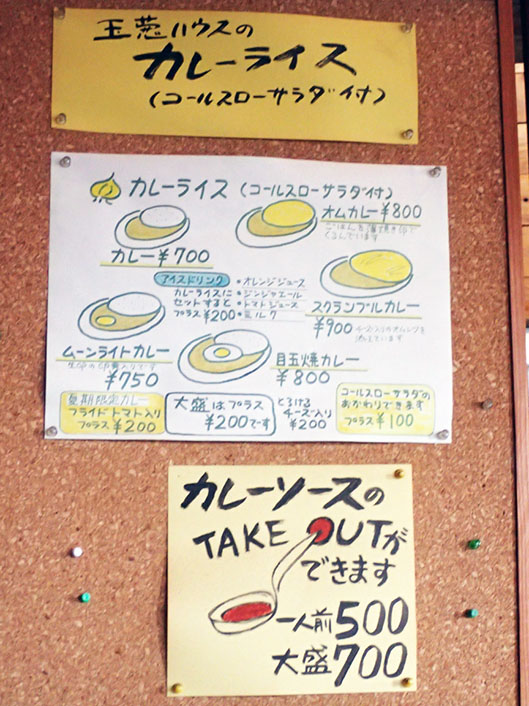 玉葱ハウスの
カレーライス
(コールスローサラダ付)
カレーライス (コールスローサラダ付)
カレー ¥700
オムカレー ¥800
ごはんを薄焼き
くるんでいます
アイスドリンク
カレーライスに
セットすると
プラス¥200
・オレンジジュース
・ジンジャエール
・トマトジュース
・ミルク
スクランブルカレー
¥900
チーズ入りのオムレツを
添えています
ムーンライトカレー
¥750
目玉焼カレー
¥800
夏期限定カレー
フライドトマト入り
プラス ¥200
大盛はプラス
¥200です
とろける
チーズ入り
¥200
コールスローサラダの
おかわりできます
プラス ¥100
カレーソースの
TAKE OUTが
できます
一人前500
大盛700